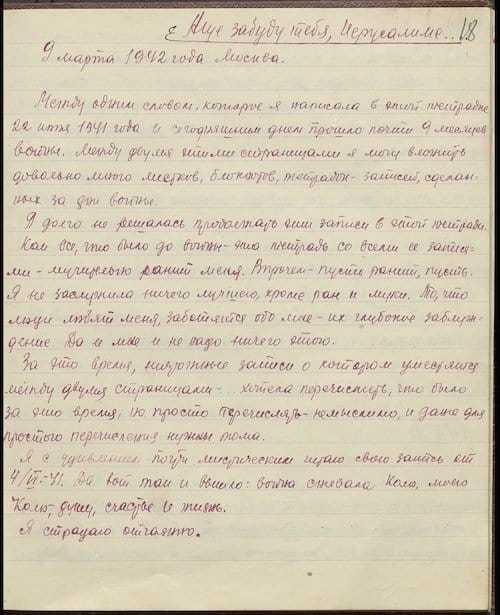 Аще забуду тебя, Иерусалиме.. 18
9 марта 1942 года Москва.
Между одним словом, которое я написала в этой тетрадке
22 июня 1941 года и сегодняшним днем прошло почти 9 месяцев
войны. Между двумя этими страницами я могу вложить
довольно много листков, блокнотов, тетрадок - записей, сделан-
ных за дни войны.
Я долго не решалась продолжать эти записи в этой тетради.
Как все, что было до войны - эта тетрадь со всеми ее запися-
ми - мучительно ранит меня. Впрочем - пусть ранит, пусть.
Я не заслужила ничего лучшего, кроме ран и муки. То, что
люди любят меня, заботятся обо мне - их глубокое заблуж-
дение. Да и мне и не надо ничего этого.
За это время, ничтожные записи о котором уместятся
между двумя страницами - .. хотела перечислить, что было
за это время, но просто перечислять - немыслимо, и даже для
простого перечисления нужны тома.
Я с удивлением почти мистическим читаю свою запись от
4/VI-41. Да вот так и вышло: война сжевала Колю, моего
Колю, душу, счастье и жизнь.
Я страдаю отчаянно.